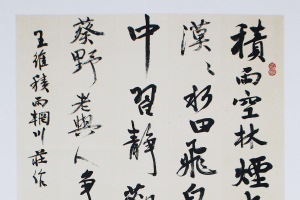 積雨空林煙
漠〻水田飛白
中習靜觀
葵野老與人爭
王維積雨輞川莊作